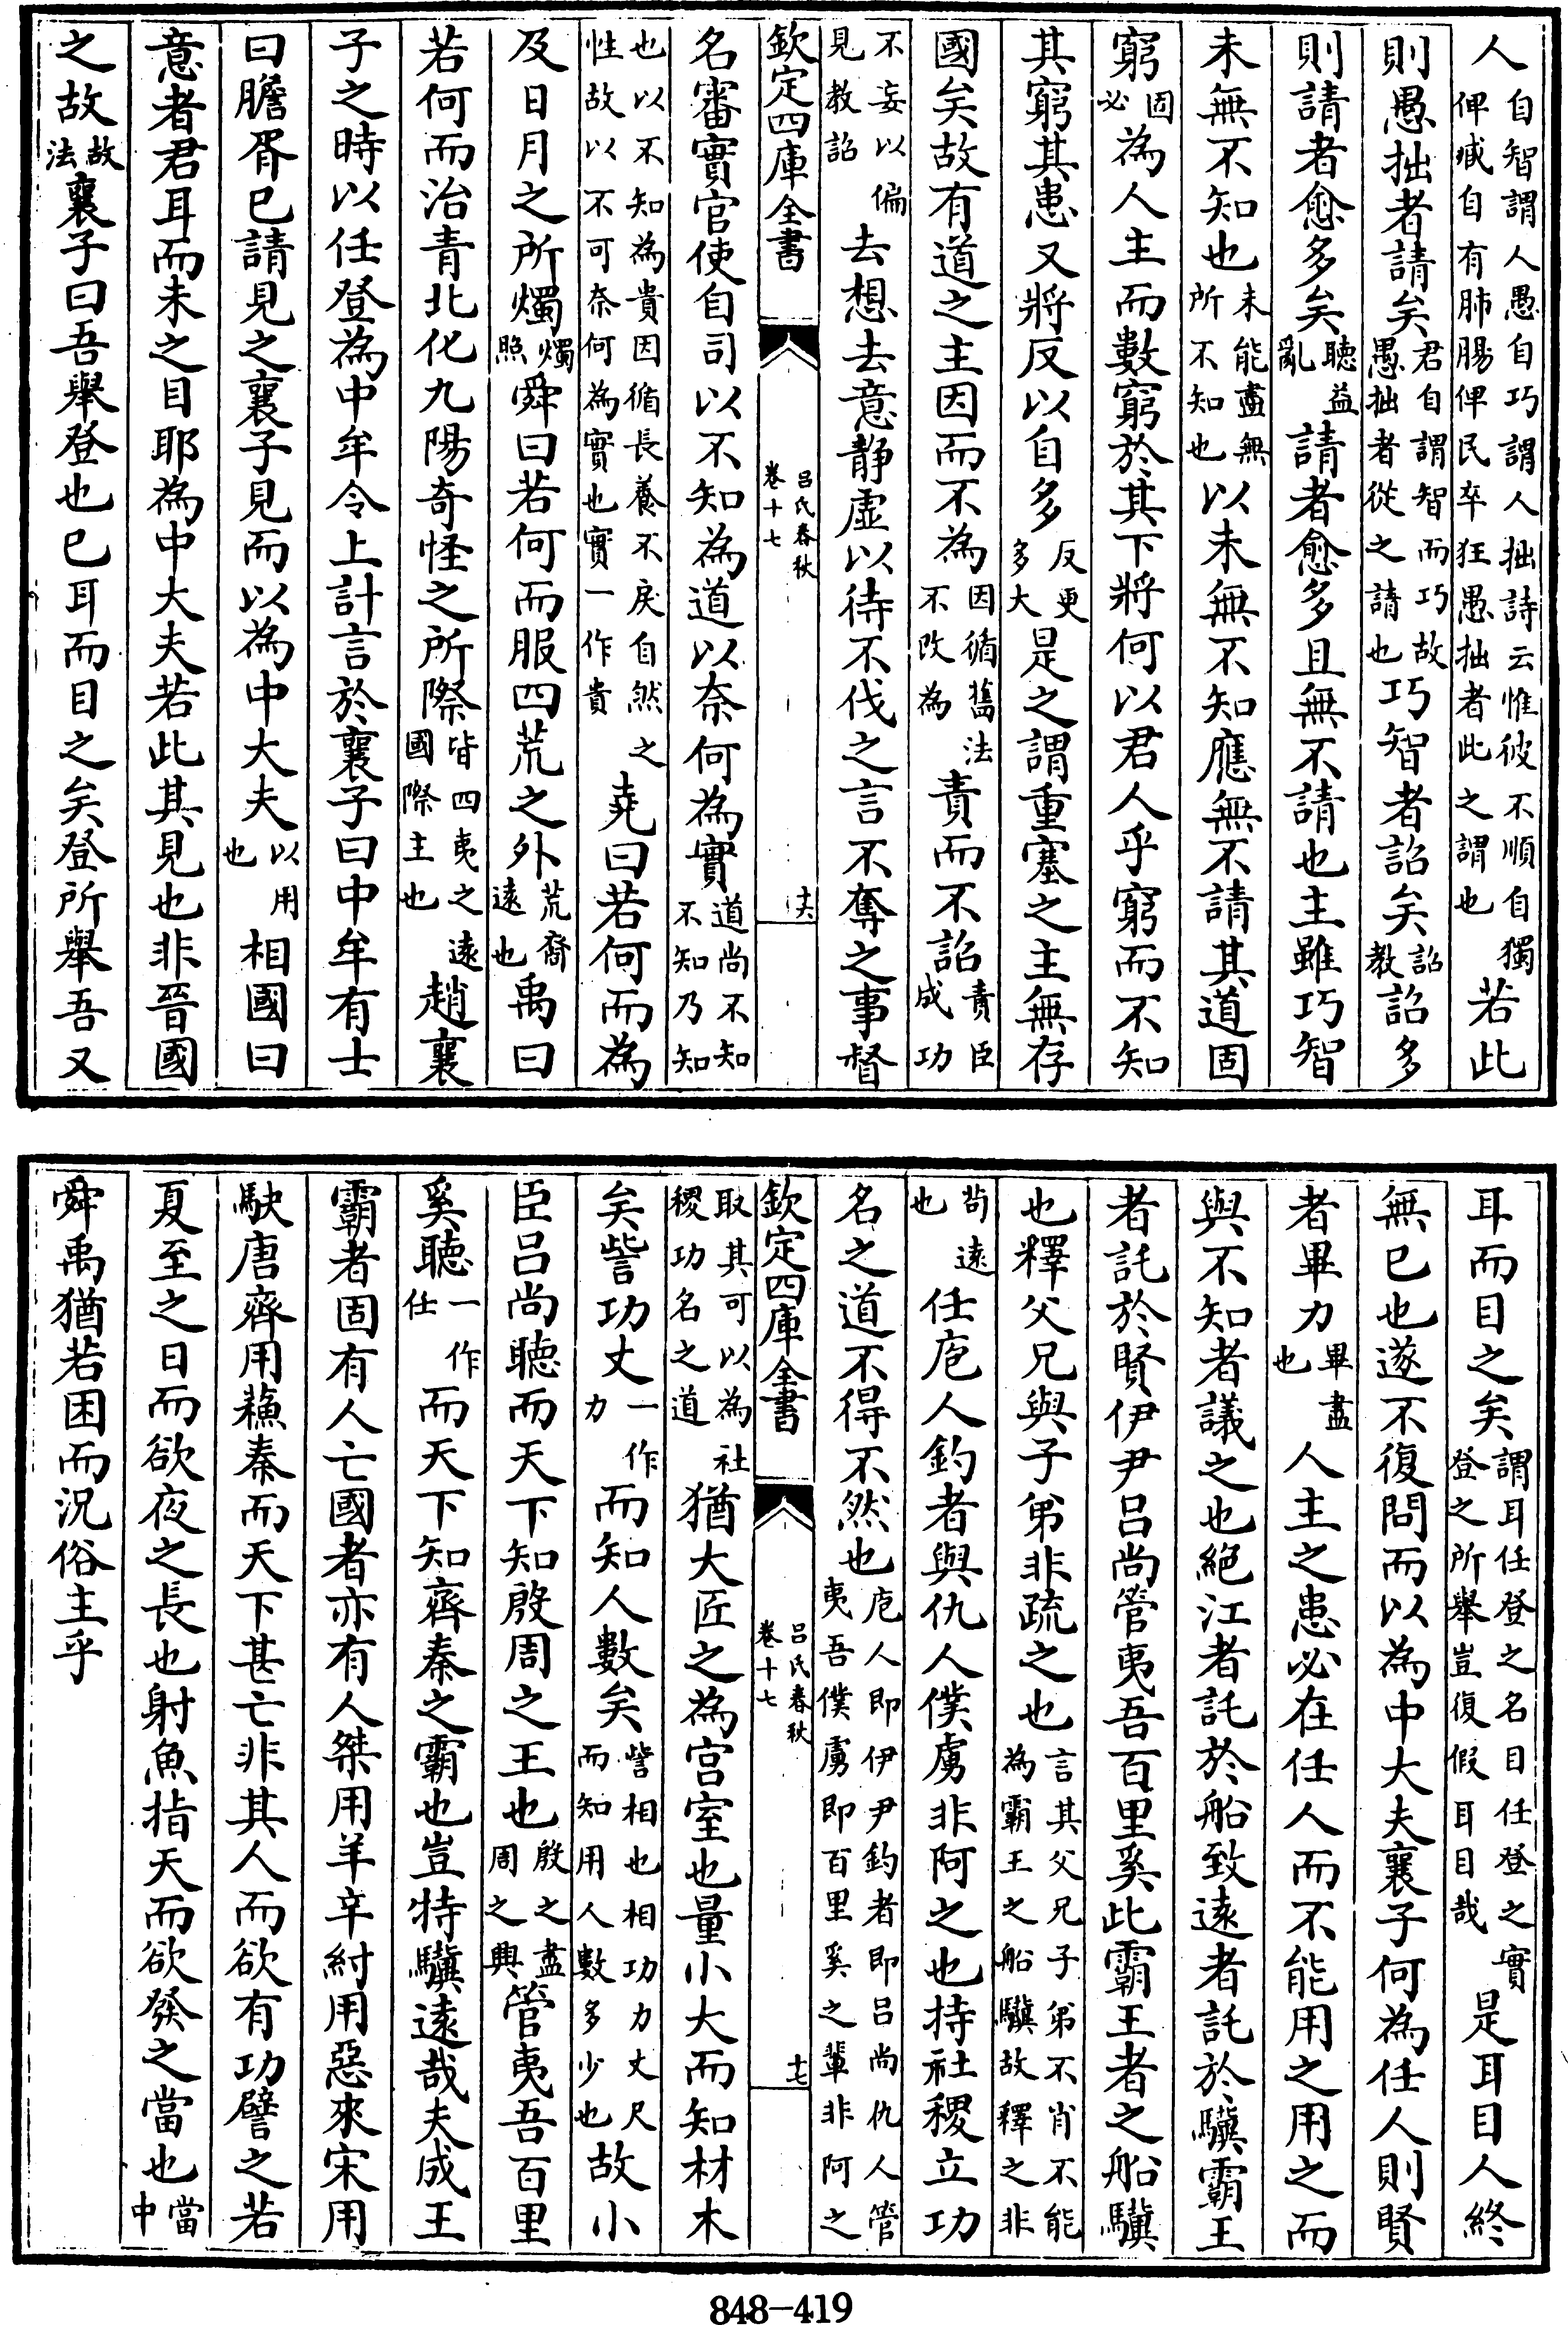 人自智謂人愚自巧謂人拙詩云惟彼不順自獨俾臧自有肺腸俾民卒狂愚拙者此之謂也若此
則愚拙者請矣君自謂智而巧故愚拙者從之請也巧智者詔矣詔教詔多
則請者愈多矣聽益亂請者愈多且無不請也主雖巧智
未無不知也未能盡無所不知也以未無不知應無不請其道固
窮固必為人主而數窮於其下將何以君人乎窮而不知
其窮其患又將反以自多反更多大是之謂重塞之主無存
國矣故有道之主因而不為因循舊法不改為責而不詔責臣成功
不妄以偏見教詔去想去意静虛以待不伐之言不奪之事督
欽定四庫全書
呂氏春秋
卷十七
十六
名審實官使自司以不知為道以奈何為實道尚不知不知乃知
也以不知為貴因循長養不戾自然之性故以不可奈何為實也實一作貴堯曰若何而為
及日月之所燭燭照舜曰若何而服四荒之外荒裔遠也禹曰
若何而治青北化九陽奇怪之所際皆四夷之遠國際主也趙襄
子之時以任登為中牟令上計言於襄子曰中牟有士
曰膽胥已請見之襄子見而以為中大夫以用也相國曰
意者君耳而未之目耶為中大夫若此其見也非晉國
之故故法襄子曰吾舉登也已耳而目之矣登所舉吾又
耳而目之矣謂耳任登之名目任登之實登之所舉豈復假耳目哉是耳目人終
無已也遂不復問而以為中大夫襄子何為任人則賢
者畢力畢盡也人主之患必在任人而不能用之用之而
與不知者議之也絕江者託於船致遠者託於驥霸王
者託於賢伊尹呂尚管夷吾百里奚此霸王者之船驥
也釋父兄與子弟非疏之也言其父兄子弟不肖不能為霸王之船驥故釋之非
苟遠也任庖人釣者與仇人僕虜非阿之也持社稷立功
名之道不得不然也庖人即伊尹釣者即呂尚仇人管夷吾僕虜即百里奚之輩非阿之
欽定四庫全書
呂氏春秋
卷十七
十七
取其可以為社稷功名之道猶大匠之為宮室也量小大而知材木
矣訾功丈一作力而知人數矣訾相也相功力丈尺而知用人數多少也故小
臣呂尚聽而天下知殷周之王也殷之盡周之興管夷吾百里
奚聽一作任而天下知齊秦之霸也豈特驥遠哉夫成王
霸者固有人亡國者亦有人桀用羊辛紂用惡來宋用
駚唐齊用蘓秦而天下甚亡非其人而欲有功譬之若
夏至之日而欲夜之長也射魚指天而欲發之當也當中
舜禹猶若困而況俗主乎
848-419